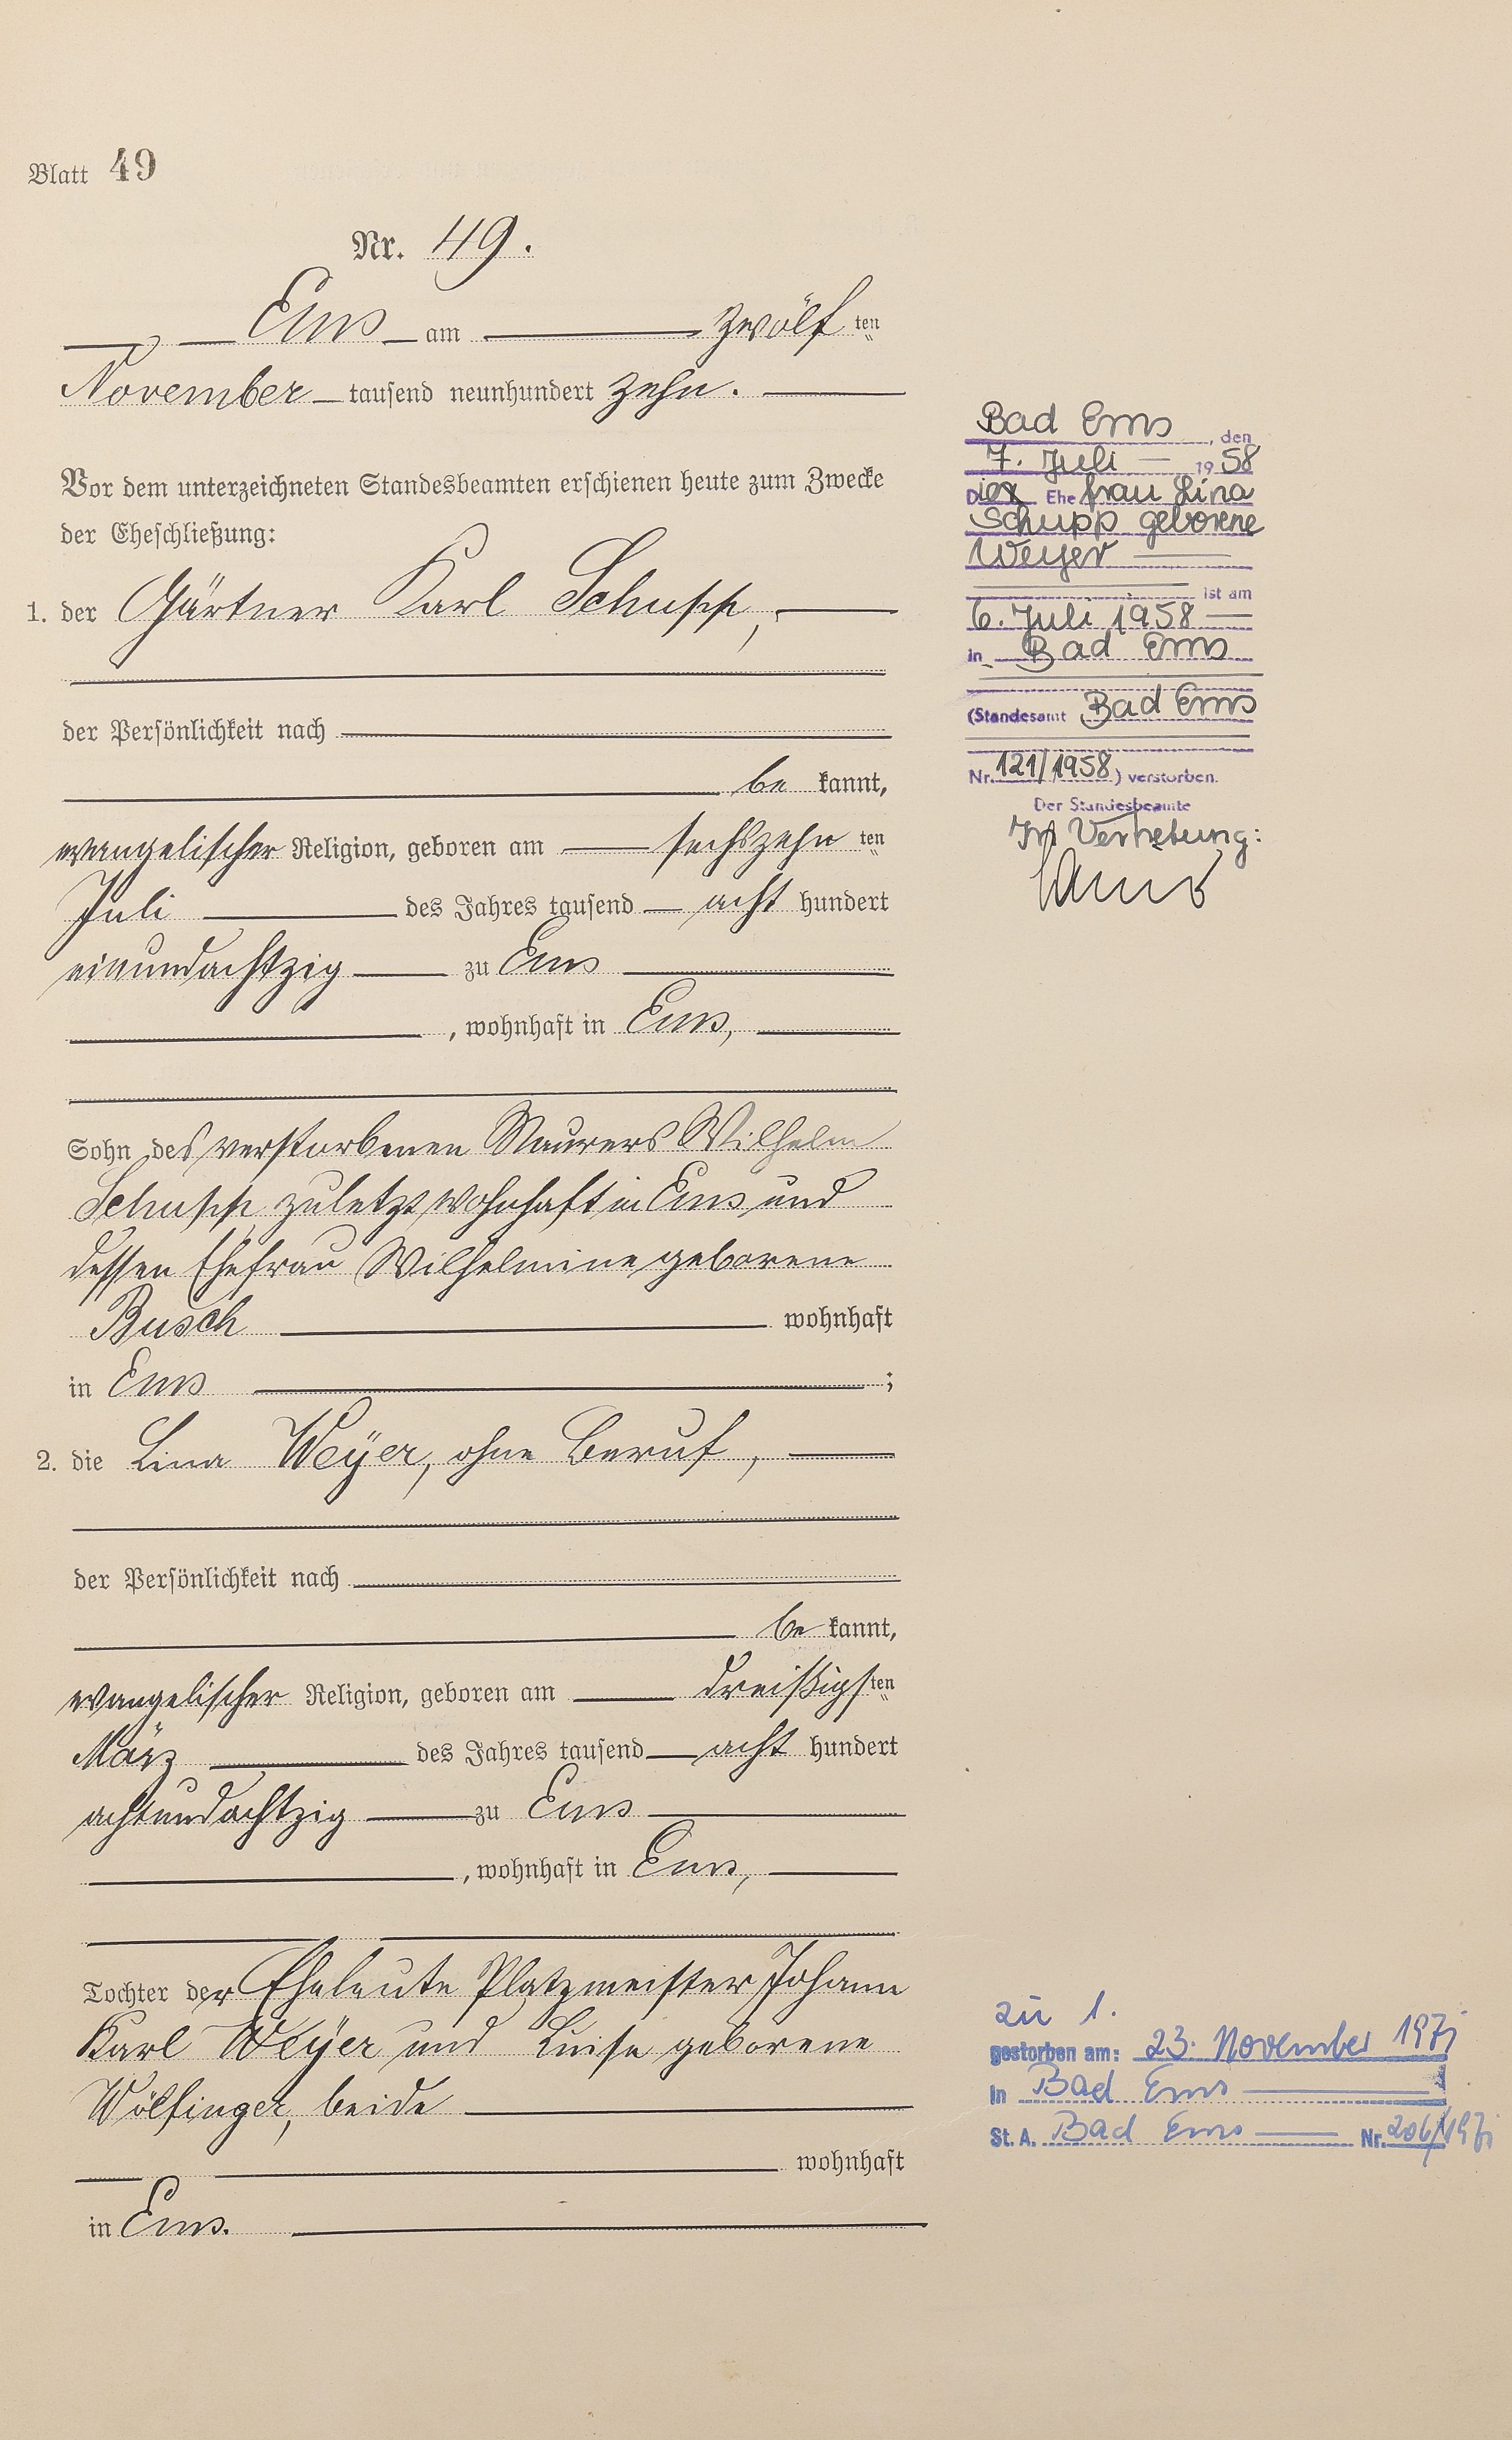 Blatt 49
Nr. 49.
Ems am zwölf ten
November tausend neunhundert zehn.
Vor dem unterzeichneten Standesbeamten erschienen heute zum Zwecke
der Eheschließung:
1. der Gärtner Karl Schupp,
der Persönlichkeit nach
be kannt,
evangelischer Religion, geboren am sechszehn ten
Juli des Jahres tausend acht hundert
einundachtzig zu Ems
, wohnhaft in Ems,
Sohn des verstorbenen Maurers Wilhelm
Schupp, zuletzt wohnhaft in Ems und
dessen Ehefrau Wilhelmine geborene
Busch wohnhaft
in Ems ;
2. die Lina Weÿer, ohne Beruf,
der Persönlichkeit nach
be kannt,
evangelischer Religion, geboren am dreißigs ten
März des Jahres tausend acht hundert
achtundachtzig zu Ems
, wohnhaft in Ems,
Tochter der Eheleute Platzmeister Johann
Karl Weÿer und Luise geborene
Wölfinger, beide
wohnhaft
in Ems.
Bad Ems, den
7. Juli 1958
Die Ehefrau Lina
Schupp geborene
Weyer
ist am
6. Juli 1958
in Bad Ems
(Standesamt Bad Ems
Nr. 121/1958) verstorben.
Der Standesbeamte
In Vertretung:
zu 1.
gestorben am: 23. November 1971
in Bad Ems
St. A. Bad Ems Nr. 206/1971